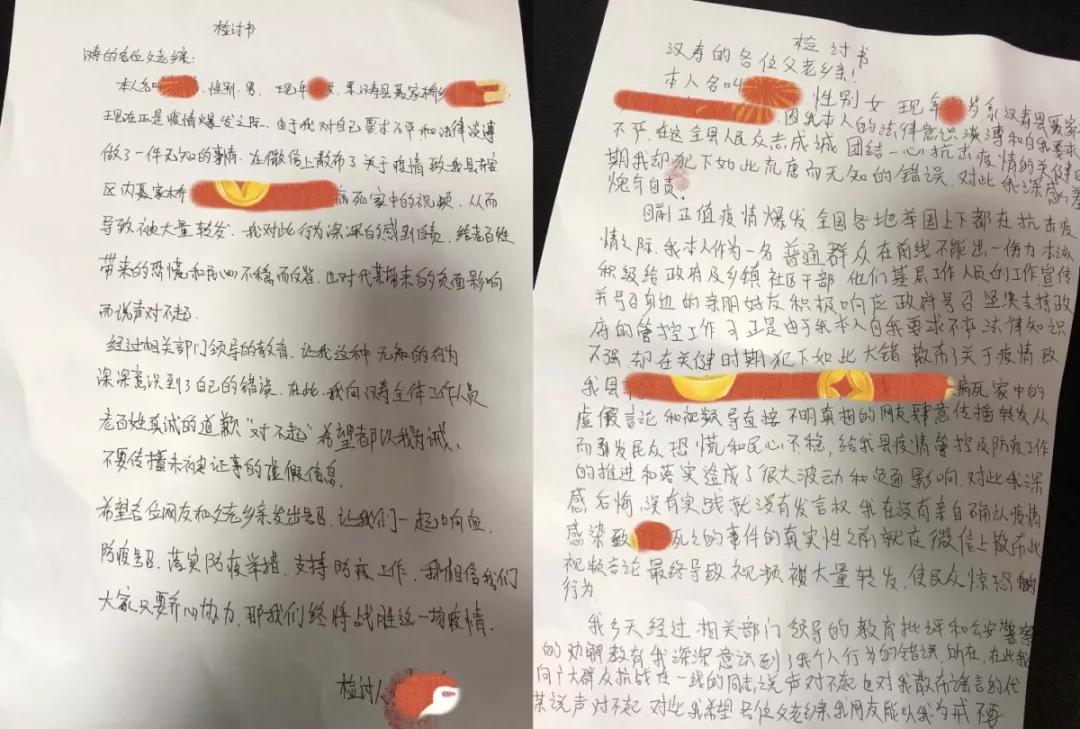 检讨书
寿的各位父老乡亲:
本人名叫 性别.男. 现年 女 系汉寿县聂家桥乡
现在正是疫情爆发之际.由于我对自己要求不严和法律淡薄
做了一件无知的事情.在微信上散布了关于疫情致我县
区内聂家桥 病死家中的视频.从而
导致被大量转发.我对此行为深深的感到自责,给老百姓
带来的恐慌和民心不稳而 也对代某带来的负面影响
而说声对不起.
经过相关部门领导的教育.让我这种无知的行为
深深意识到了自己的错误.在此.我向汉寿全体工作人员
老百姓真诚的道歉"对不起"希望都以我为诫.
不要传播未被证事的虚假信息.
希望各位网友和父老乡亲发出号召.让我们一起响应
防疫号召.落实防疫举措.支持防疫工作.我相信我们
大家只要齐心协力.那我们终将战胜这一场疫情.
检讨人
检讨书
汉寿的各位父老乡亲!
本人名叫 性别女 现年 岁系汉寿县聂家
因我本人的法律意识淡薄和自我要求
不严,在这全县人民众志成城 团结一心抗击疫情的关健
期我却犯下如此荒唐而无知的错误.对此我深感羞
愧与自责.
目前正值疫情爆发.全国各地举国上下都在抗击疫
情之际.我本人作为一名普通群众在前线不能出一份力本该
积级给政府及乡镇社区干部 他们基层工作人员的工作宣传
并号召身边的亲朋好友积极响应政府号召坚决支持政
府的管控工作可正是由于我本人自我要求不严法律知识
不强.却在关健时期犯下如此大错 散布了关于疫情致
我县 病死家中的
虚假言论和视频导直接不明真想的网友肆意传播转发从
而引发民众恐慌和民心不稳,给我县疫情管控及防疫工作
的推进和落实造成了很大波动和负面影响.对此我深
感后悔,没有实践就没有发言权.我在没有亲自确认疫情
感染致 死亡的事件的真实性之前就在微信上散布此
视频言论 最终导致视频被大量转发.使民众惊恐的
行为.
我今天经过相关部门领导的教育批评和公安警察
的劝解教育我深深意识到了我个人行为的错误,所在,在此我
向广大群众抗战在一线的同志,说声对不起也对我散布谣言的代
某说声对不起 对此我希望各位父老乡亲我网友能以我为戒 不要